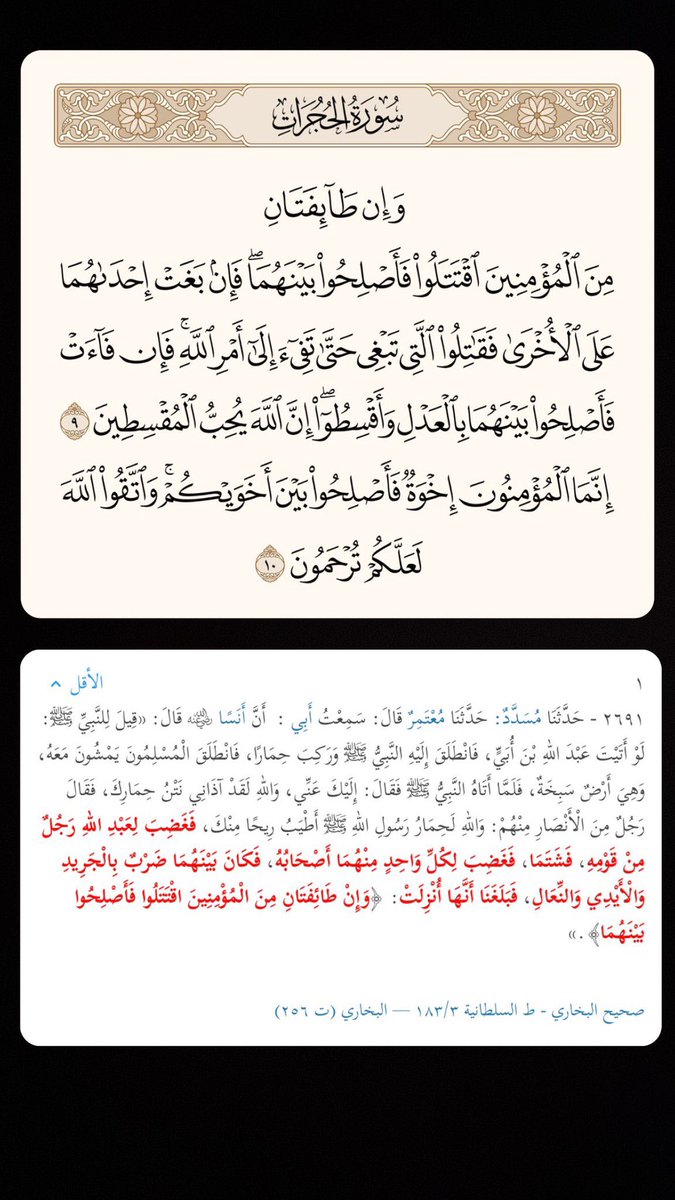 سُورَةُ الحُجُرَاتِ
وَإِن طَآئِفَتَانِ
مِنَ ٱلْمُؤْمِنِينَ ٱقْتَتَلُوا۟ فَأَصْلِحُوا۟ بَيْنَهُمَا ۖ فَإِنۢ بَغَتْ إِحْدَىٰهُمَا
عَلَى ٱلْأُخْرَىٰ فَقَٰتِلُوا۟ ٱلَّتِى تَبْغِى حَتَّىٰ تَفِىٓءَ إِلَىٰٓ أَمْرِ ٱللَّهِ ۚ فَإِن فَآءَتْ
فَأَصْلِحُوا۟ بَيْنَهُمَا بِٱلْعَدْلِ وَأَقْسِطُوٓا۟ ۖ إِنَّ ٱللَّهَ يُحِبُّ ٱلْمُقْسِطِينَ ٩
إِنَّمَا ٱلْمُؤْمِنُونَ إِخْوَةٌ فَأَصْلِحُوا۟ بَيْنَ أَخَوَيْكُمْ ۚ وَٱتَّقُوا۟ ٱللَّهَ
لَعَلَّكُمْ تُرْحَمُونَ ١٠
١ الأقل
٢٦٩١ - حَدَّثَنَا مُسَدَّدٌ: حَدَّثَنَا مُعْتَمِرٌ قَالَ: سَمِعْتُ أَبِي : أَنَّ أَنَسًا ﵁ قَالَ: «قِيلَ لِلنَّبِيِّ ﷺ:
لَوْ أَتَيْتَ عَبْدَ اللهِ بْنَ أُبَيٍّ، فَانْطَلَقَ إِلَيْهِ النَّبِيُّ ﷺ وَرَكِبَ حِمَارًا، فَانْطَلَقَ الْمُسْلِمُونَ يَمْشُونَ مَعَهُ،
وَهِيَ أَرْضٌ سَبِخَةٌ، فَلَمَّا أَتَاهُ النَّبِيُّ ﷺ فَقَالَ: إِلَيْكَ عَنِّي، وَاللهِ لَقَدْ آذَانِي نَتْنُ حِمَارِكَ، فَقَالَ
رَجُلٌ مِنَ الْأَنْصَارِ مِنْهُمْ: وَاللهِ لَحِمَارُ رَسُولِ اللهِ ﷺ أَطْيَبُ رِيحًا مِنْكَ، فَغَضِبَ لِعَبْدِ اللهِ رَجُلٌ
مِنْ قَوْمِهِ، فَشَتَمَا، فَغَضِبَ لِكُلِّ وَاحِدٍ مِنْهُمَا أَصْحَابُهُ، فَكَانَ بَيْنَهُمَا ضَرْبٌ بِالْجَرِيدِ
وَالْأَيْدِي وَالنِّعَالِ، فَبَلَغَنَا أَنَّهَا أُنْزِلَتْ: ﴿وَإِنْ طَائِفَتَانِ مِنَ الْمُؤْمِنِينَ اقْتَتَلُوا فَأَصْلِحُوا
بَيْنَهُمَا﴾.»
صحيح البخاري - ط السلطانية ٣/١٨٣ — البخاري (ت ٢٥٦)